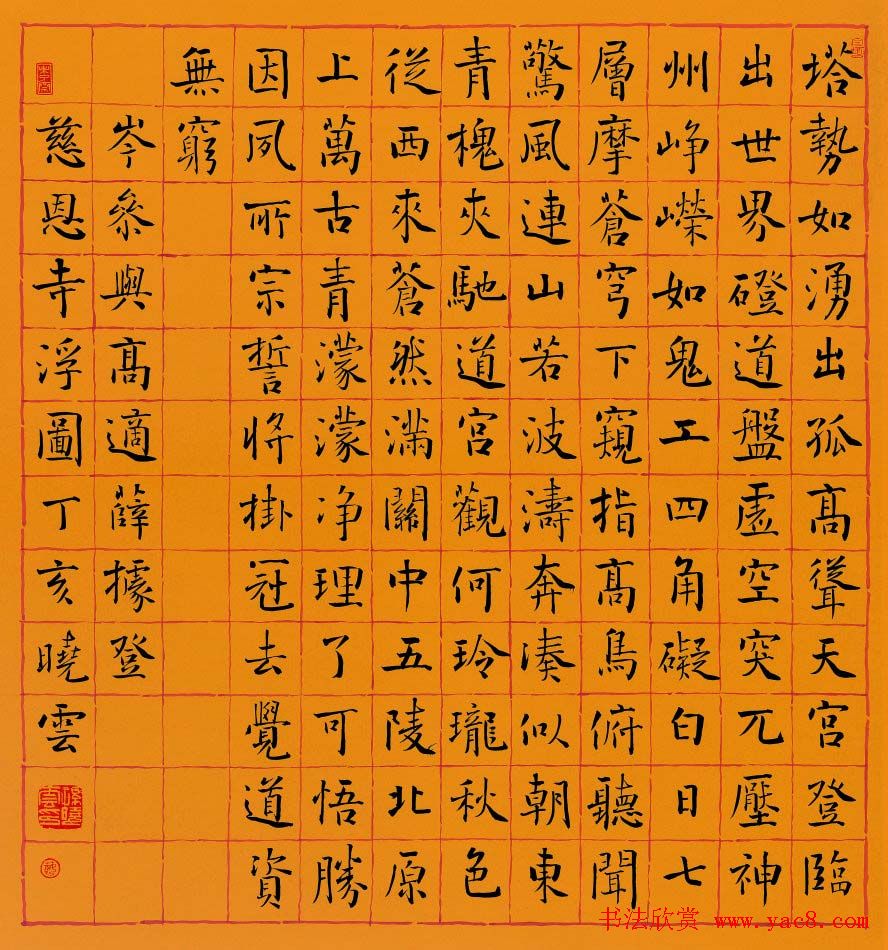 塔勢如湧出孤髙聳天宮登臨
出世界磴道盤虛空突兀壓神
州峥嶸如鬼工四角礙白日七
層摩蒼穹下窺指髙鳥俯聽聞
驚風連山若波濤奔湊似朝東
青槐夾馳道宮觀何玲瓏秋色
從西來蒼然滿關中五陵北原
上萬古青濛濛净理了可悟勝
因夙所宗誓將掛冠去覺道資
無窮
岑參與髙適薛據登
慈恩寺浮圖丁亥曉雲
书法欣赏 www.yac8.com